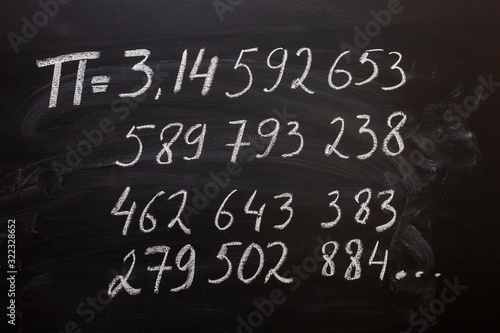 π=3,14 592 653
589 793 238
462 643 383
279 502 884...
Adobe Stock | #322328652